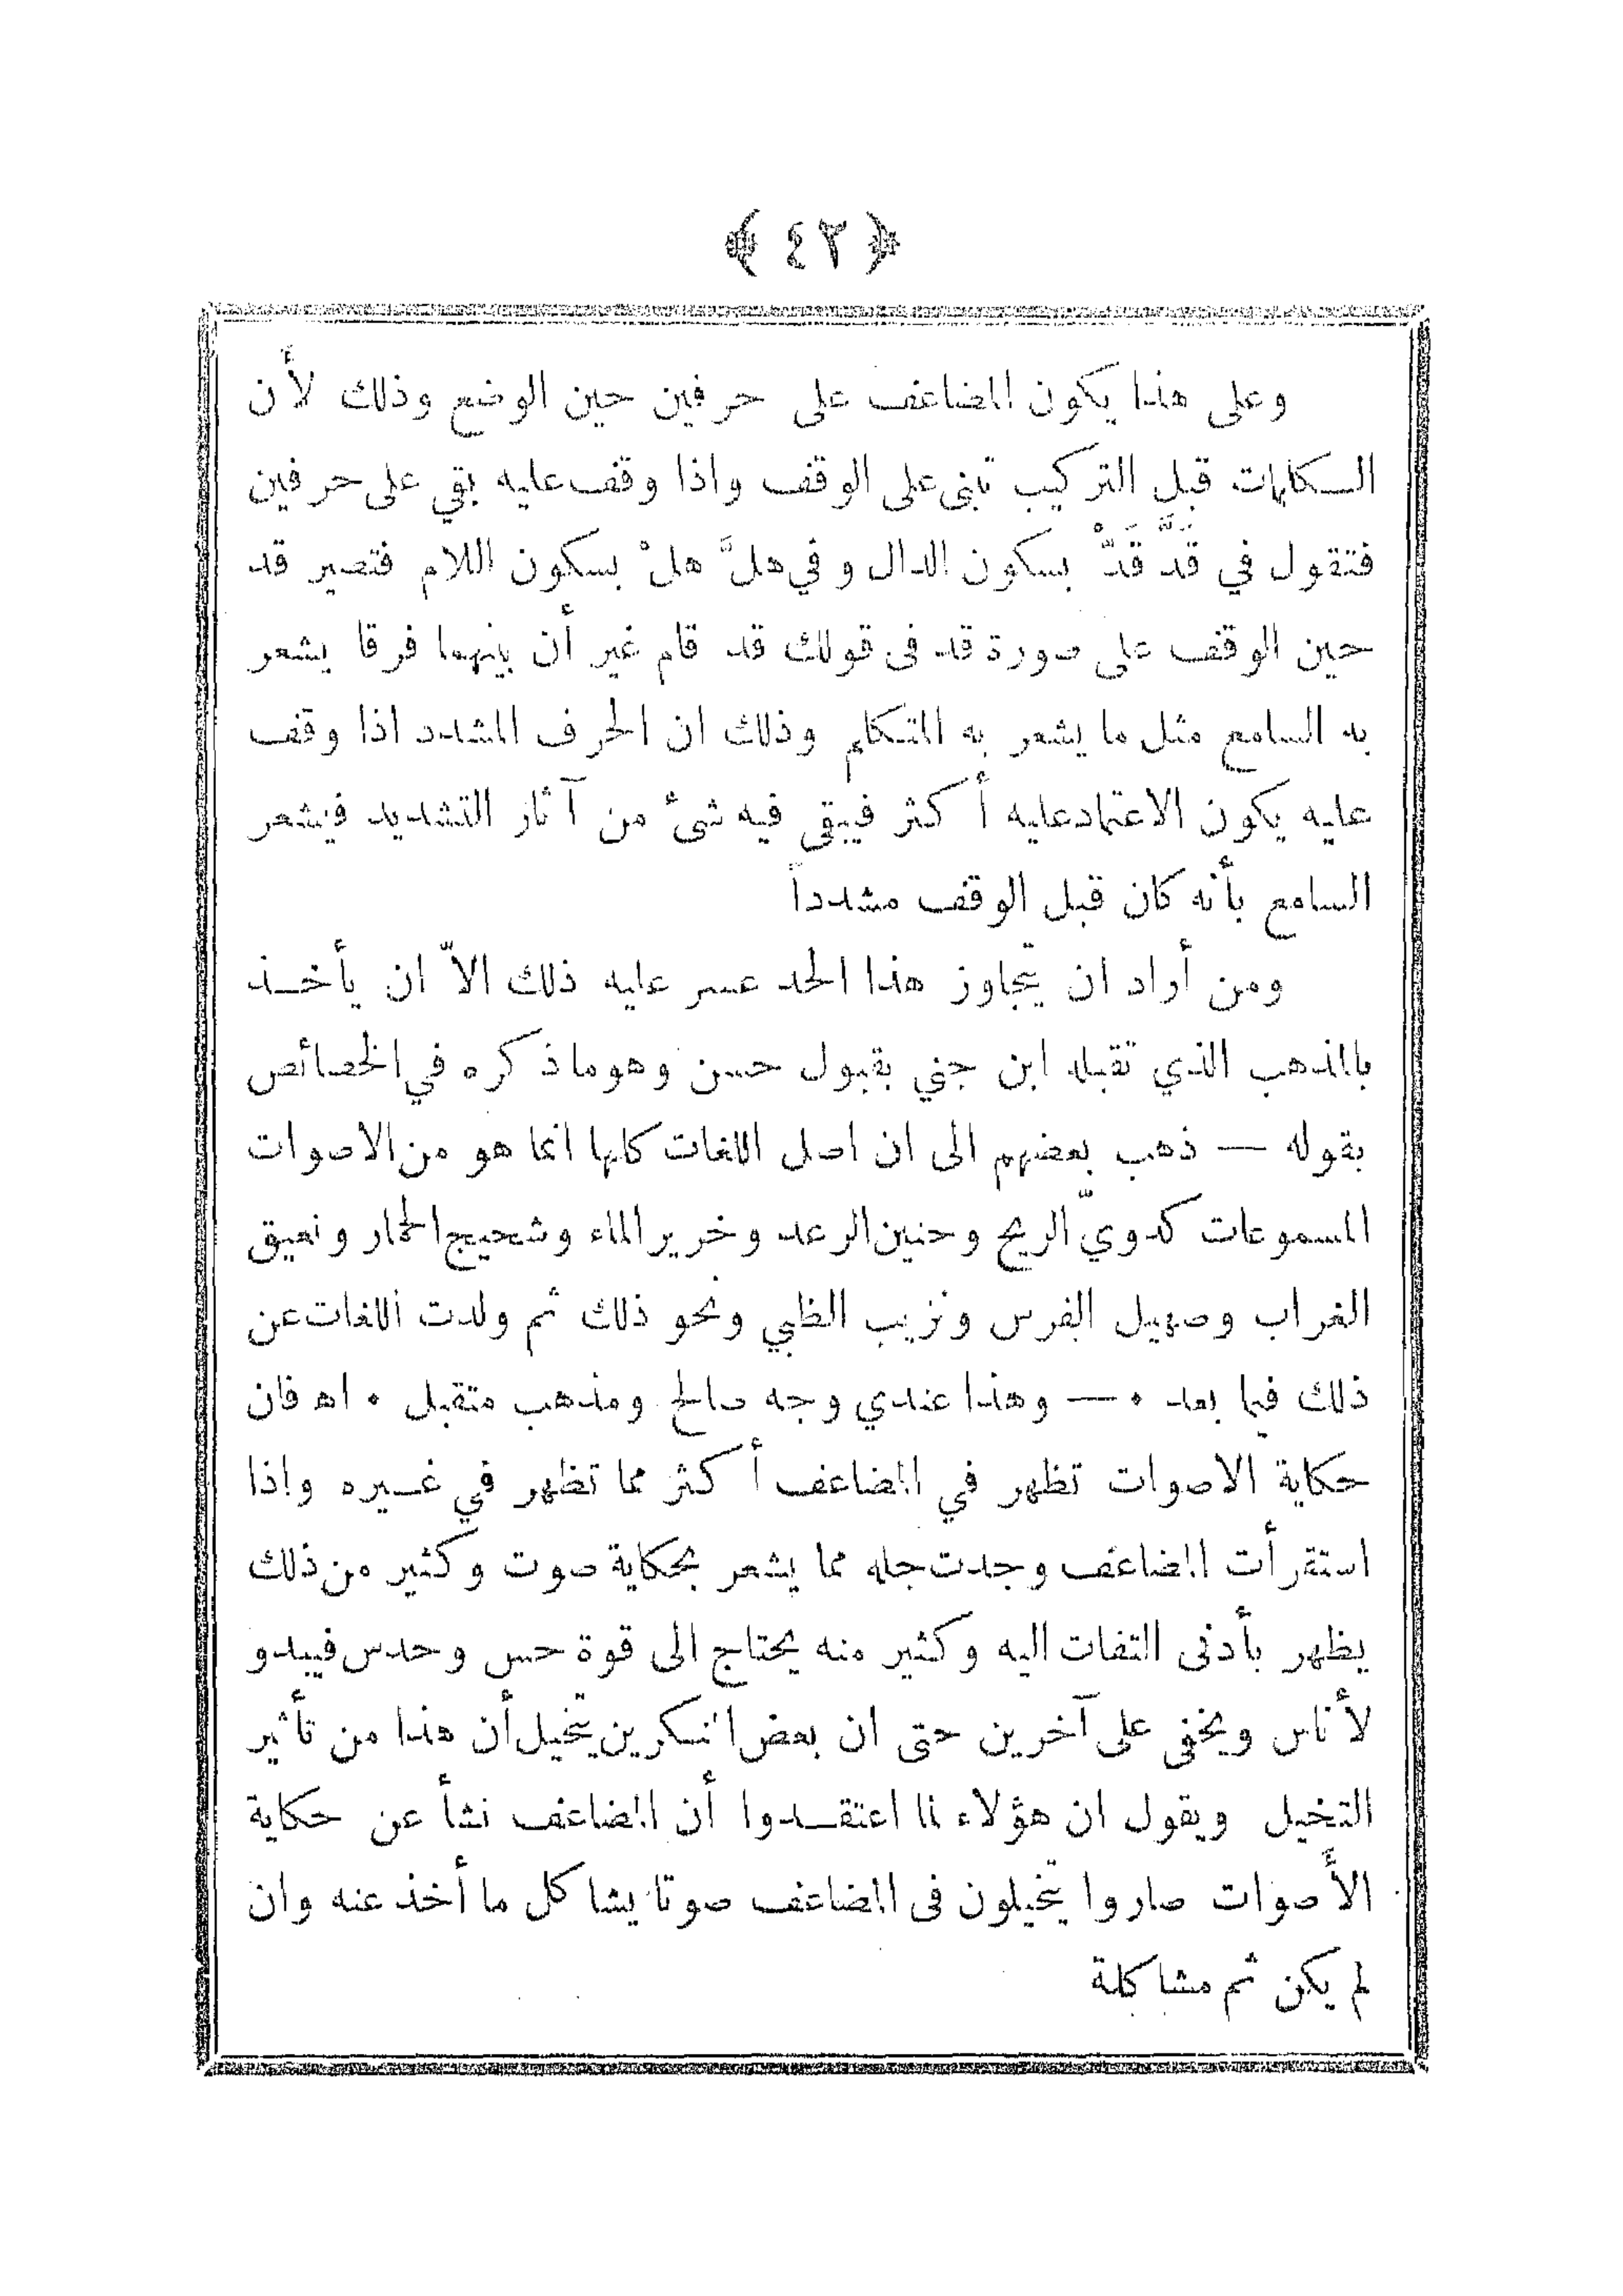 ﴿ ٤٢ ﴾
وعلى هذا يكون المضاعف على حرفين حين الوضع وذلك لأن
الكلمات قبل التركيب تبنى على الوقف واذا وقف عليه بقي على حرفين
فتقول في قَدَّ قَدّْ بسكون الدال وفي هلَّ هلْ بسكون اللام فتصير قد
حين الوقف على صورة قد فى قولك قد قام غير أن بينهما فرقا يشعر
به السامع مثل ما يشعر به المتكلم وذلك ان الحرف المشدد اذا وقف
عليه يكون الاعتماد عليه أكثر فيبقى فيه شئ من آثار التشديد فيشعر
السامع بأنه كان قبل الوقف مشدداً
ومن أراد ان يتجاوز هذا الحد عسر عليه ذلك الاّ ان يأخذ
بالمذهب الذي تقبله ابن جني بقبول حسن وهو ما ذكره في الخصائص
بقوله — ذهب بعضهم الى ان اصل اللغات كلها انما هو من الاصوات
المسموعات كدويّ الريح وحنين الرعد وخرير الماء وشحيج الحمار ونعيق
الغراب وصهيل الفرس ونزيب الظبي ونحو ذلك ثم ولدت اللغات عن
ذلك فيما بعد ٠ — وهذا عندي وجه صالح ومذهب متقبل ٠ اه فان
حكاية الاصوات تظهر في المضاعف أكثر مما تظهر في غيره واذا
استقرأت المضاعف وجدت جله مما يشعر بحكاية صوت وكثير من ذلك
يظهر بأدنى التفات اليه وكثير منه يحتاج الى قوة حس وحدس فيبدو
لأناس ويخفى على آخرين حتى ان بعض المنكرين يتخيل أن هذا من تأثير
التخيل ويقول ان هؤلاء لما اعتقدوا أن المضاعف نشأ عن حكاية
الأصوات صاروا يتخيلون فى المضاعف صوتا يشاكل ما أخذ عنه وان
لم يكن ثم مشاكلة